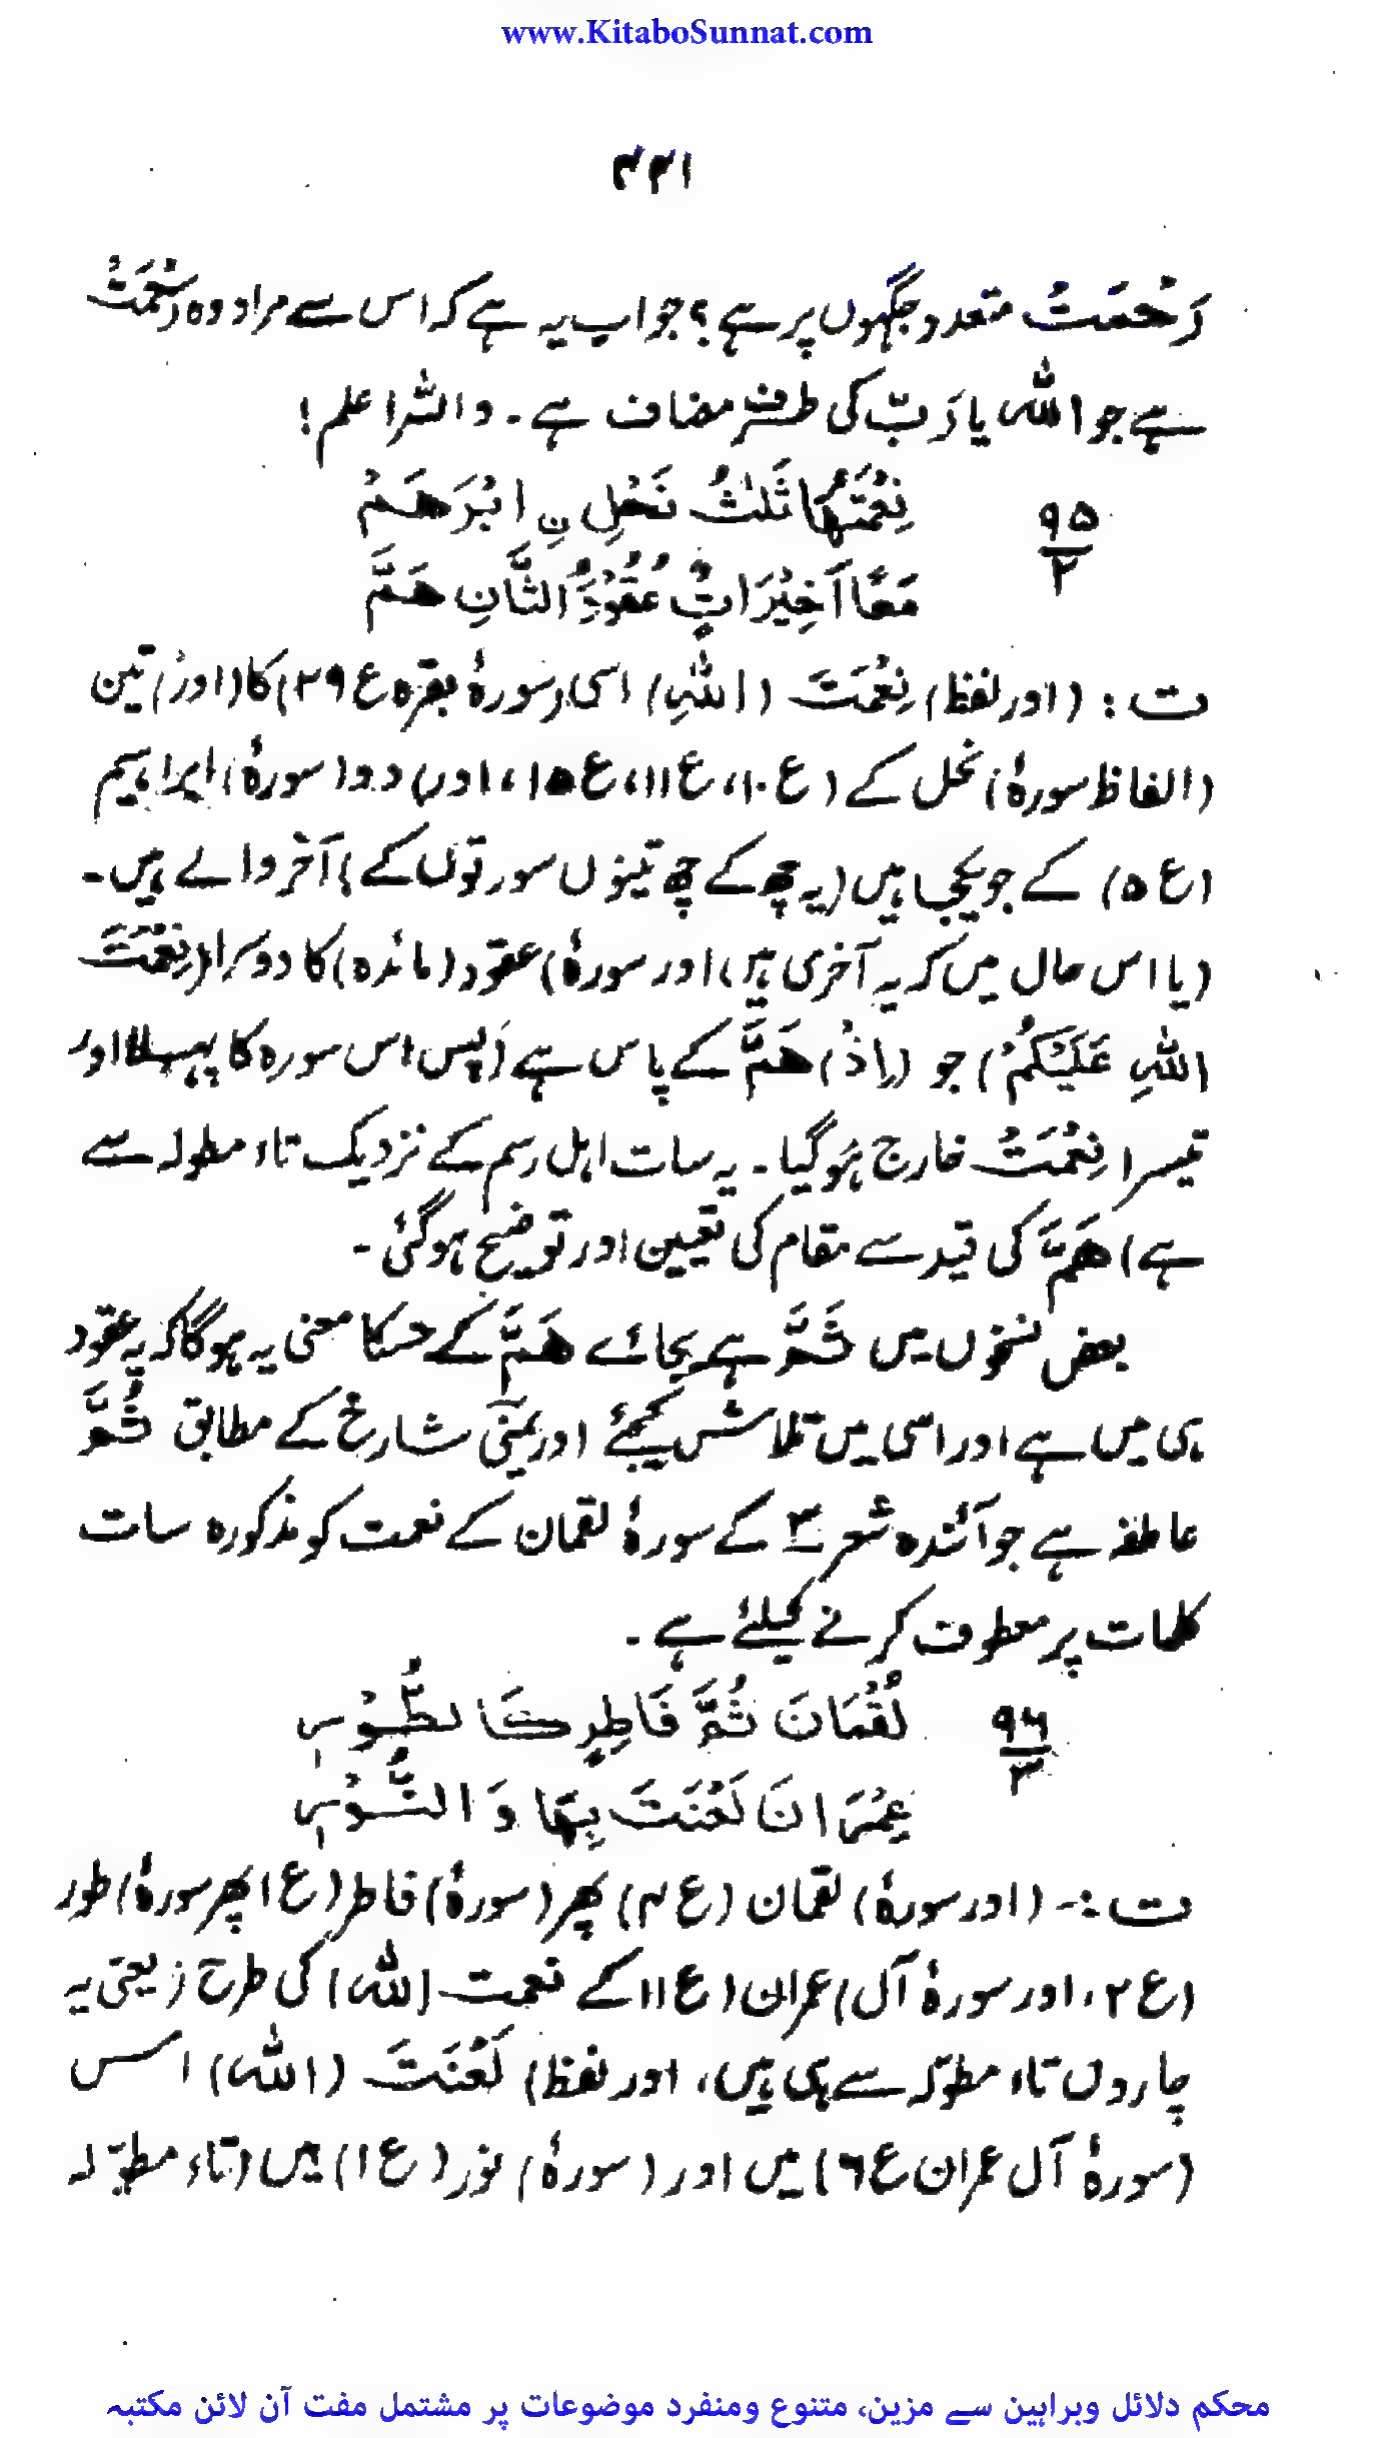 www.KitaboSunnat.com
۴۲۱
رَحْمَتُ متعدد جگہوں پر ہے؟ جواب یہ ہے کہ اس سے مراد وہ رَحْمَتُ
ہے جو اللہ یا رَبّ کی طرف مضاف ہے۔ واللہ اعلم!
۹۵
۲
نِعْمَتُهَا ثَلٰثُ نَحْلٍ نِ ابْرَهَمْ
مَعًا اَخِيْرَاتٌ عُقُوْدُ الثَّانِ هَمَّ
ت: (اور لفظ) نِعْمَتَ (اللّٰهِ) اسی (سورۂ بقرہ ع ۲۹) کا (اور) تین
(الفاظ سورۂ) نحل کے (ع ۱۰، ع ۱۱، ع ۱۵، اور) دو (سورۂ) ابراہیم
(ع ۵) کے جو یکجا ہیں (یہ چھ کے چھ تینوں سورتوں کے) آخر والے ہیں۔
(یا اس حال میں کہ یہ آخری ہیں، اور سورۂ) عقود (مائدہ) کا دوسرا (نِعْمَتَ
اللّٰهِ عَلَيْكُمْ) جو (اِذْ) هَمَّ کے پاس ہے (پس اس سورہ کا پہلا اور
تیسرا نِعْمَتُ خارج ہوگیا۔ یہ سات اہل رسم کے نزدیک تاء مطولہ سے
ہے) هَمَّ کی قید سے مقام کی تعیین اور توضیح ہوگئی۔
بعض نسخوں میں ثَمَّ ہے بجائے هَمَّ کے جسکا معنی یہ ہوگا کہ یہ عقود
ہی میں ہے اور اسی میں تلاش کیجئے اور یمنی شارحؒ کے مطابق ثُمَّ
عاطفہ ہے جو آئندہ شعر ۳ کے سورۂ لقمان کے نعمت کو مذکورہ سات
کلمات پر معطوف کرنے کیلئے ہے۔
۹۶
۳
لُقْمَانَ ثُمَّ فَاطِرٍ كَالطُّوْرِ
عِمْرَانَ لَعْنَتَ بِهَا وَالنُّوْرِ
ت:- (اور سورۂ) لقمان (ع ۴) پھر (سورۂ) فاطر (ع ۱ پھر سورۂ) طور
(ع ۲، اور سورۂ آل) عمران (ع ۱۱) کے نعمت (اللّٰہ) کی طرح (یعنی یہ
چاروں تاء مطوّلہ سے ہی ہیں، اور لفظ) لَعْنَتَ (اللّٰہ) اس
(سورۂ آل عمران ع ۶) میں اور (سورۂ) نور (ع ۱) میں (تاء مطوّلہ
محکم دلائل وبراہین سے مزین، متنوع ومنفرد موضوعات پر مشتمل مفت آن لائن مکتبہ